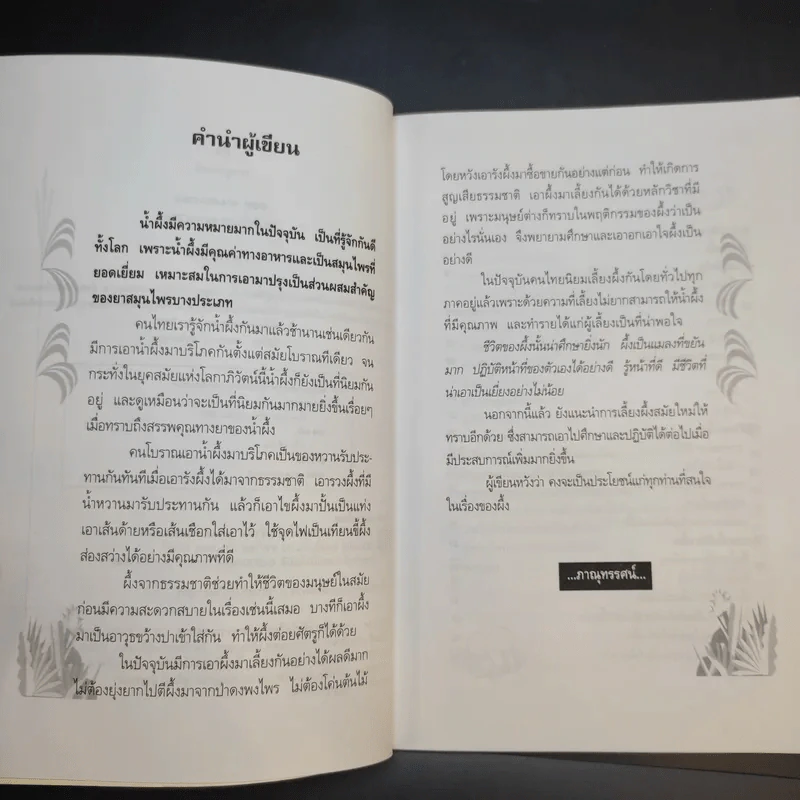 คำนำผู้เขียน
น้ำผึ้งมีความหมายมากในปัจจุบัน เป็นที่รู้จักกันดี
ทั้งโลก เพราะน้ำผึ้งมีคุณค่าทางอาหารและเป็นสมุนไพรที่
ยอดเยี่ยม เหมาะสมในการเอามาปรุงเป็นส่วนผสมสำคัญ
ของยาสมุนไพรบางประเภท
คนไทยเรารู้จักน้ำผึ้งกันมาแล้วช้านานเช่นเดียวกัน
มีการเอาน้ำผึ้งมาบริโภคกันตั้งแต่สมัยโบราณทีเดียว จน
กระทั่งในยุคสมัยแห่งโลกาภิวัตน์นี้น้ำผึ้งก็ยังเป็นที่นิยมกัน
อยู่ และดูเหมือนว่าจะเป็นที่นิยมกันมากมายยิ่งขึ้นเรื่อยๆ
เมื่อทราบถึงสรรพคุณทางยาของน้ำผึ้ง
คนโบราณเอาน้ำผึ้งมาบริโภคเป็นของหวานรับประ-
ทานกันทันทีเมื่อเอารังผึ้งได้มาจากธรรมชาติ เอารวงผึ้งที่มี
น้ำหวานมารับประทานกัน แล้วก็เอาไขผึ้งมาปั้นเป็นแท่ง
เอาเส้นด้ายหรือเส้นเชือกใส่เอาไว้ ใช้จุดไฟเป็นเทียนขี้ผึ้ง
ส่องสว่างได้อย่างมีคุณภาพที่ดี
ผึ้งจากธรรมชาติช่วยทำให้ชีวิตของมนุษย์ในสมัย
ก่อนมีความสะดวกสบายในเรื่องเช่นนี้เสมอ บางทีก็เอาผึ้ง
มาเป็นอาวุธขว้างปาเข้าใส่กัน ทำให้ผึ้งต่อยศัตรูก็ได้ด้วย
ในปัจจุบันมีการเอาผึ้งมาเลี้ยงกันอย่างได้ผลดีมาก
ไม่ต้องยุ่งยากไปตีผึ้งมาจากป่าดงพงไพร ไม่ต้องโค่นต้นไม้
โดยหวังเอารังผึ้งมาซื้อขายกันอย่างแต่ก่อน ทำให้เกิดการ
สูญเสียธรรมชาติ เอาผึ้งมาเลี้ยงกันได้ด้วยหลักวิชาที่มี
อยู่ เพราะมนุษย์ต่างก็ทราบในพฤติกรรมของผึ้งว่าเป็น
อย่างไรนั่นเอง จึงพยายามศึกษาและเอาอกเอาใจผึ้งเป็น
อย่างดี
ในปัจจุบันคนไทยนิยมเลี้ยงผึ้งกันโดยทั่วไปทุก
ภาคอยู่แล้วเพราะด้วยความที่เลี้ยงไม่ยากสามารถให้น้ำผึ้ง
ที่มีคุณภาพ และทำรายได้แก่ผู้เลี้ยงเป็นที่น่าพอใจ
ชีวิตของผึ้งนั้นน่าศึกษายิ่งนัก ผึ้งเป็นแมลงที่ขยัน
มาก ปฏิบัติหน้าที่ของตัวเองได้อย่างดี รู้หน้าที่ดี มีชีวิตที่
น่าเอาเป็นเยี่ยงอย่างไม่น้อย
นอกจากนี้แล้ว ยังแนะนำการเลี้ยงผึ้งสมัยใหม่ให้
ทราบอีกด้วย ซึ่งสามารถเอาไปศึกษาและปฏิบัติได้ต่อไปเมื่อ
มีประสบการณ์เพิ่มมากยิ่งขึ้น
ผู้เขียนหวังว่า คงจะเป็นประโยชน์แก่ทุกท่านที่สนใจ
ในเรื่องของผึ้ง
...ภาณุทรรศน์...